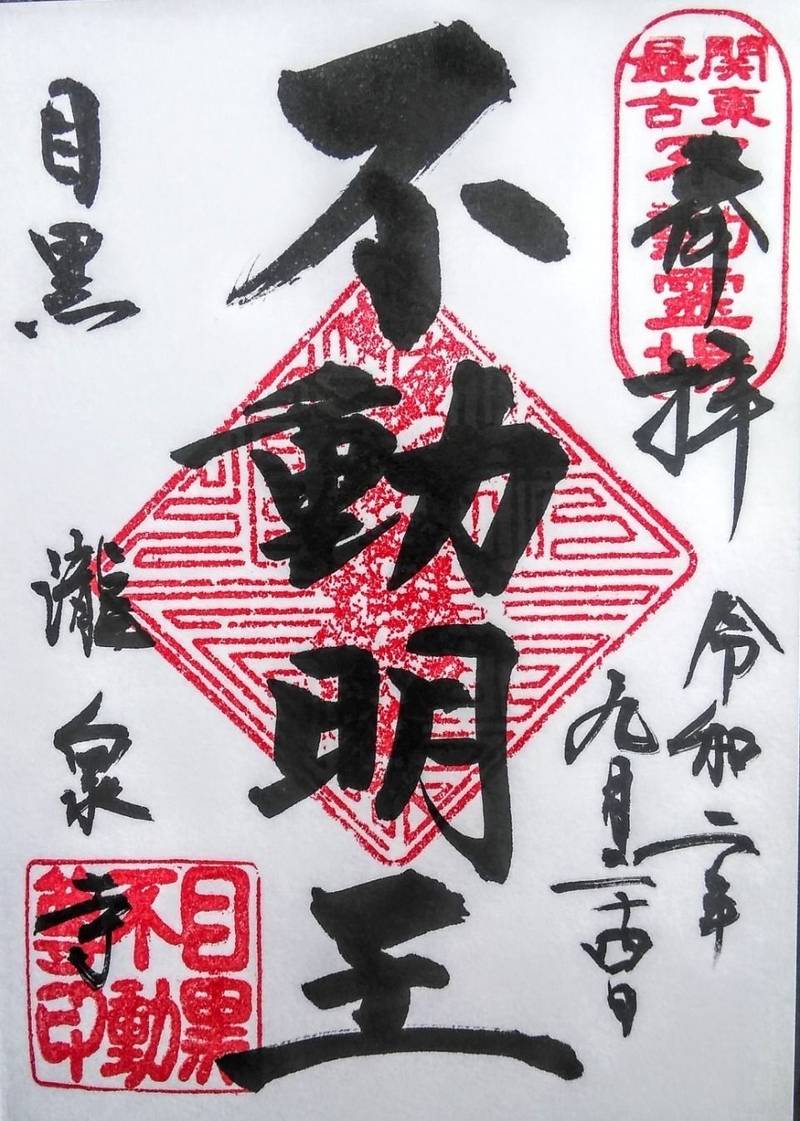 奉拝
令和二年
九月二十四日
不動明王
目黒
瀧泉寺
関東
最古
不動霊場
目黒
不動
尊印